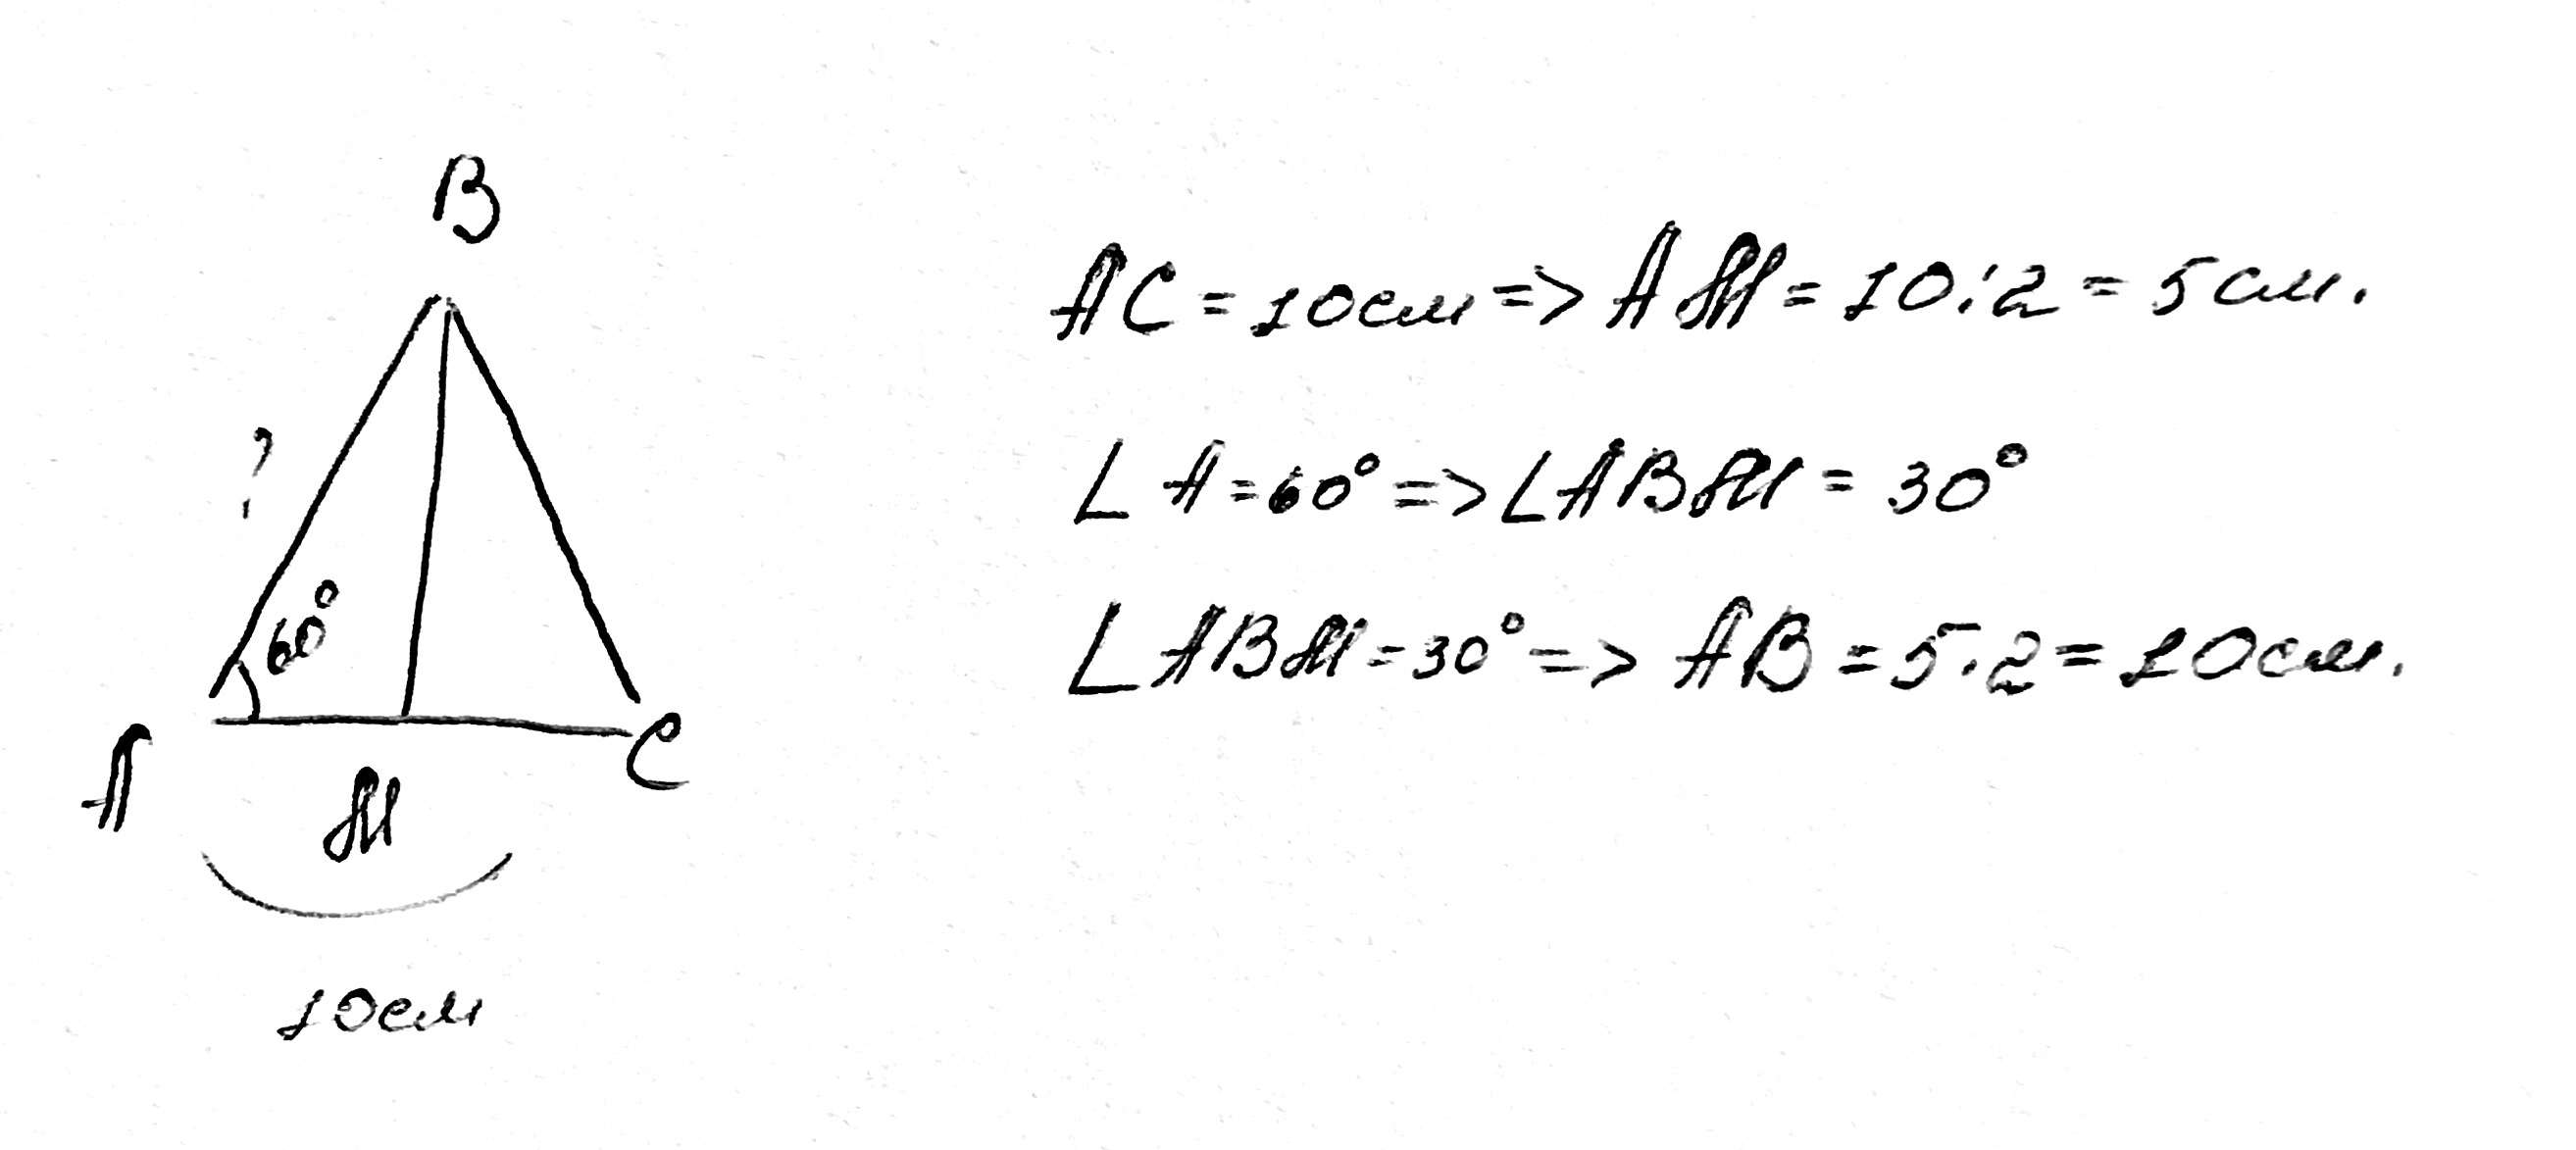 B
AC = 10см => AM = 10:2 = 5см.
?
∠A = 60° => ∠ABM = 30°
60°
∠ABM = 30° => AB = 5·2 = 10см.
A
M
C
10см